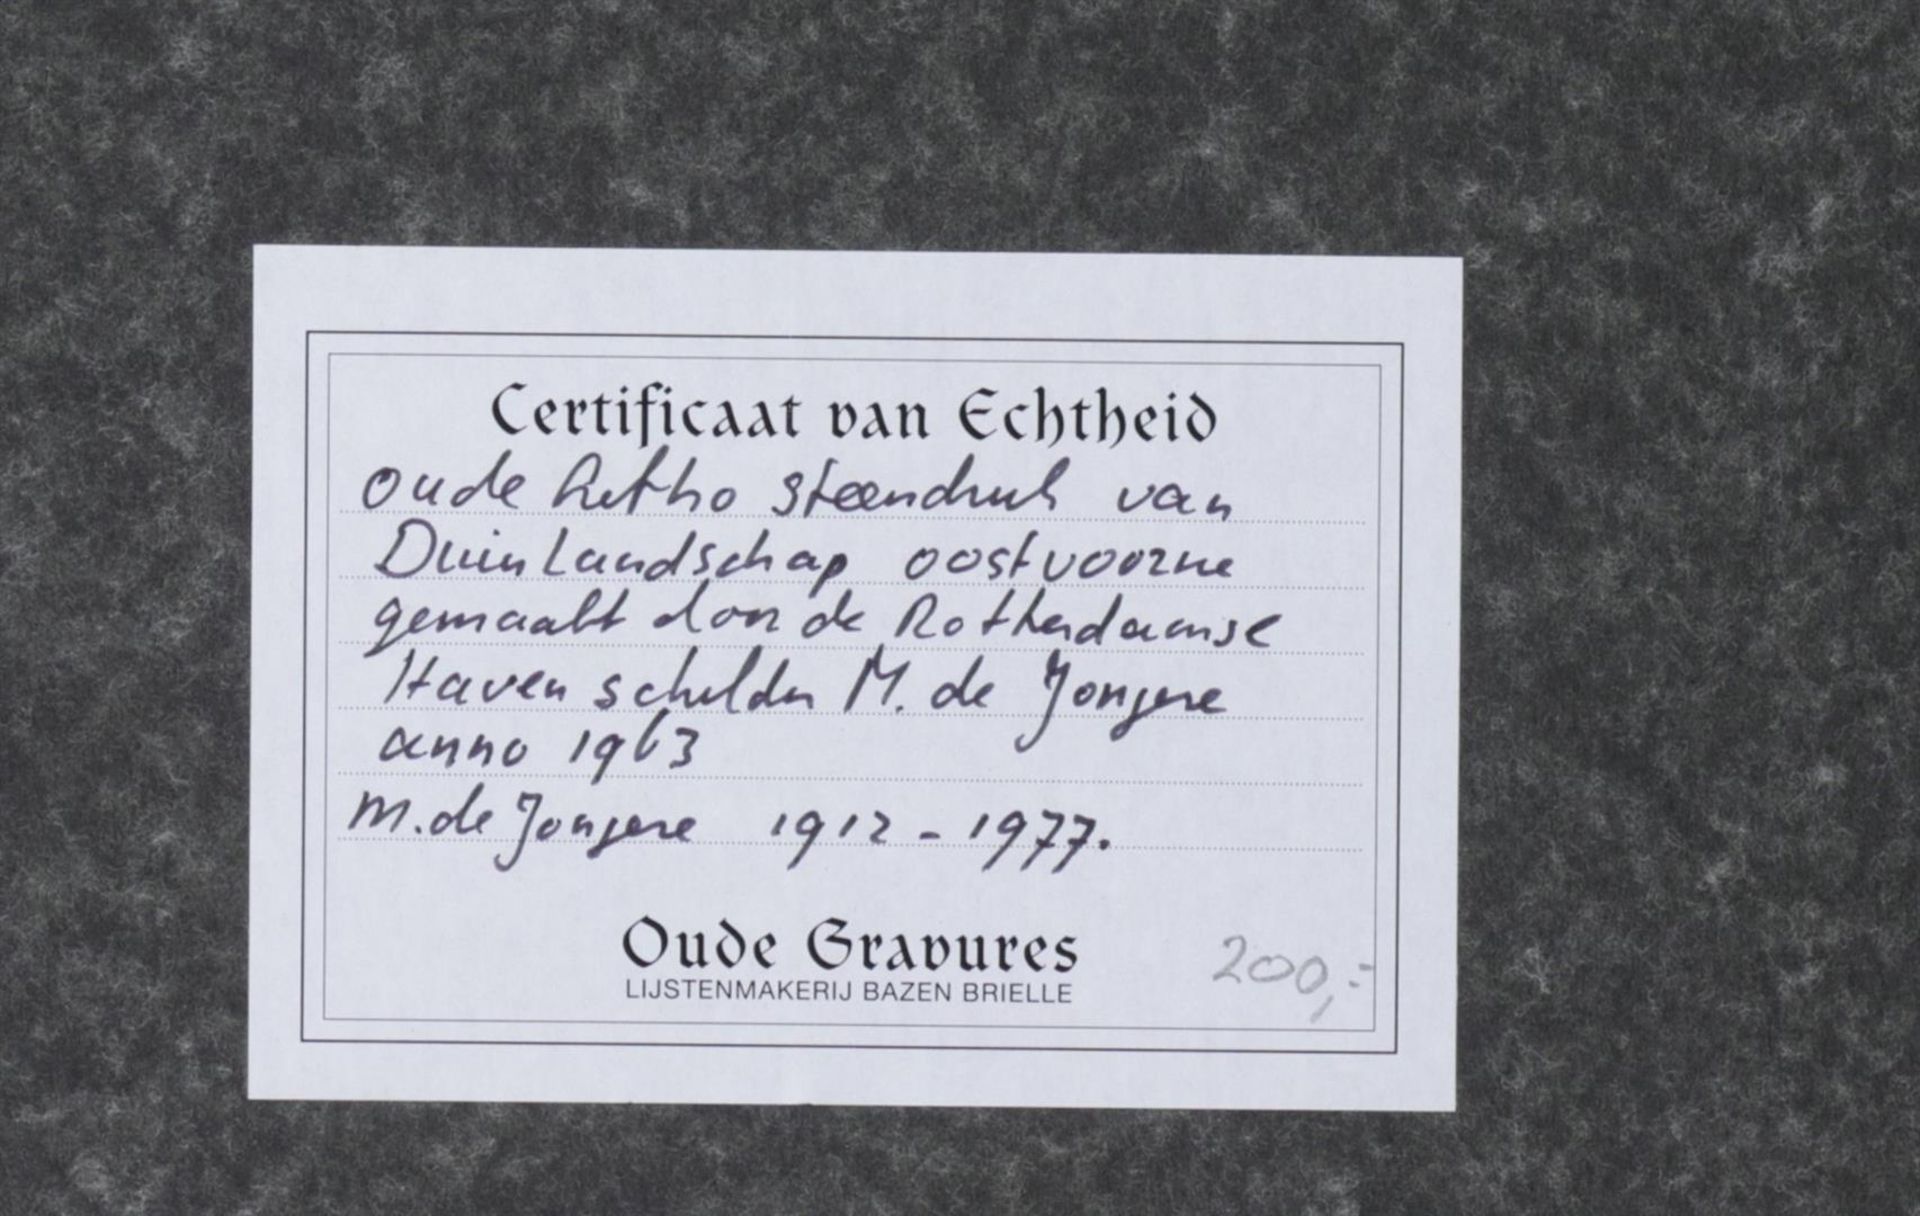 Certificaat van Echtheid
oude Litho steendruk van
Duinlandschap oostvoorne
gemaakt door de Rotterdamse
Haven schilder M. de Jongere
anno 1963
M. de Jongere 1912 - 1977.
Oude Gravures
LIJSTENMAKERIJ BAZEN BRIELLE
200,-